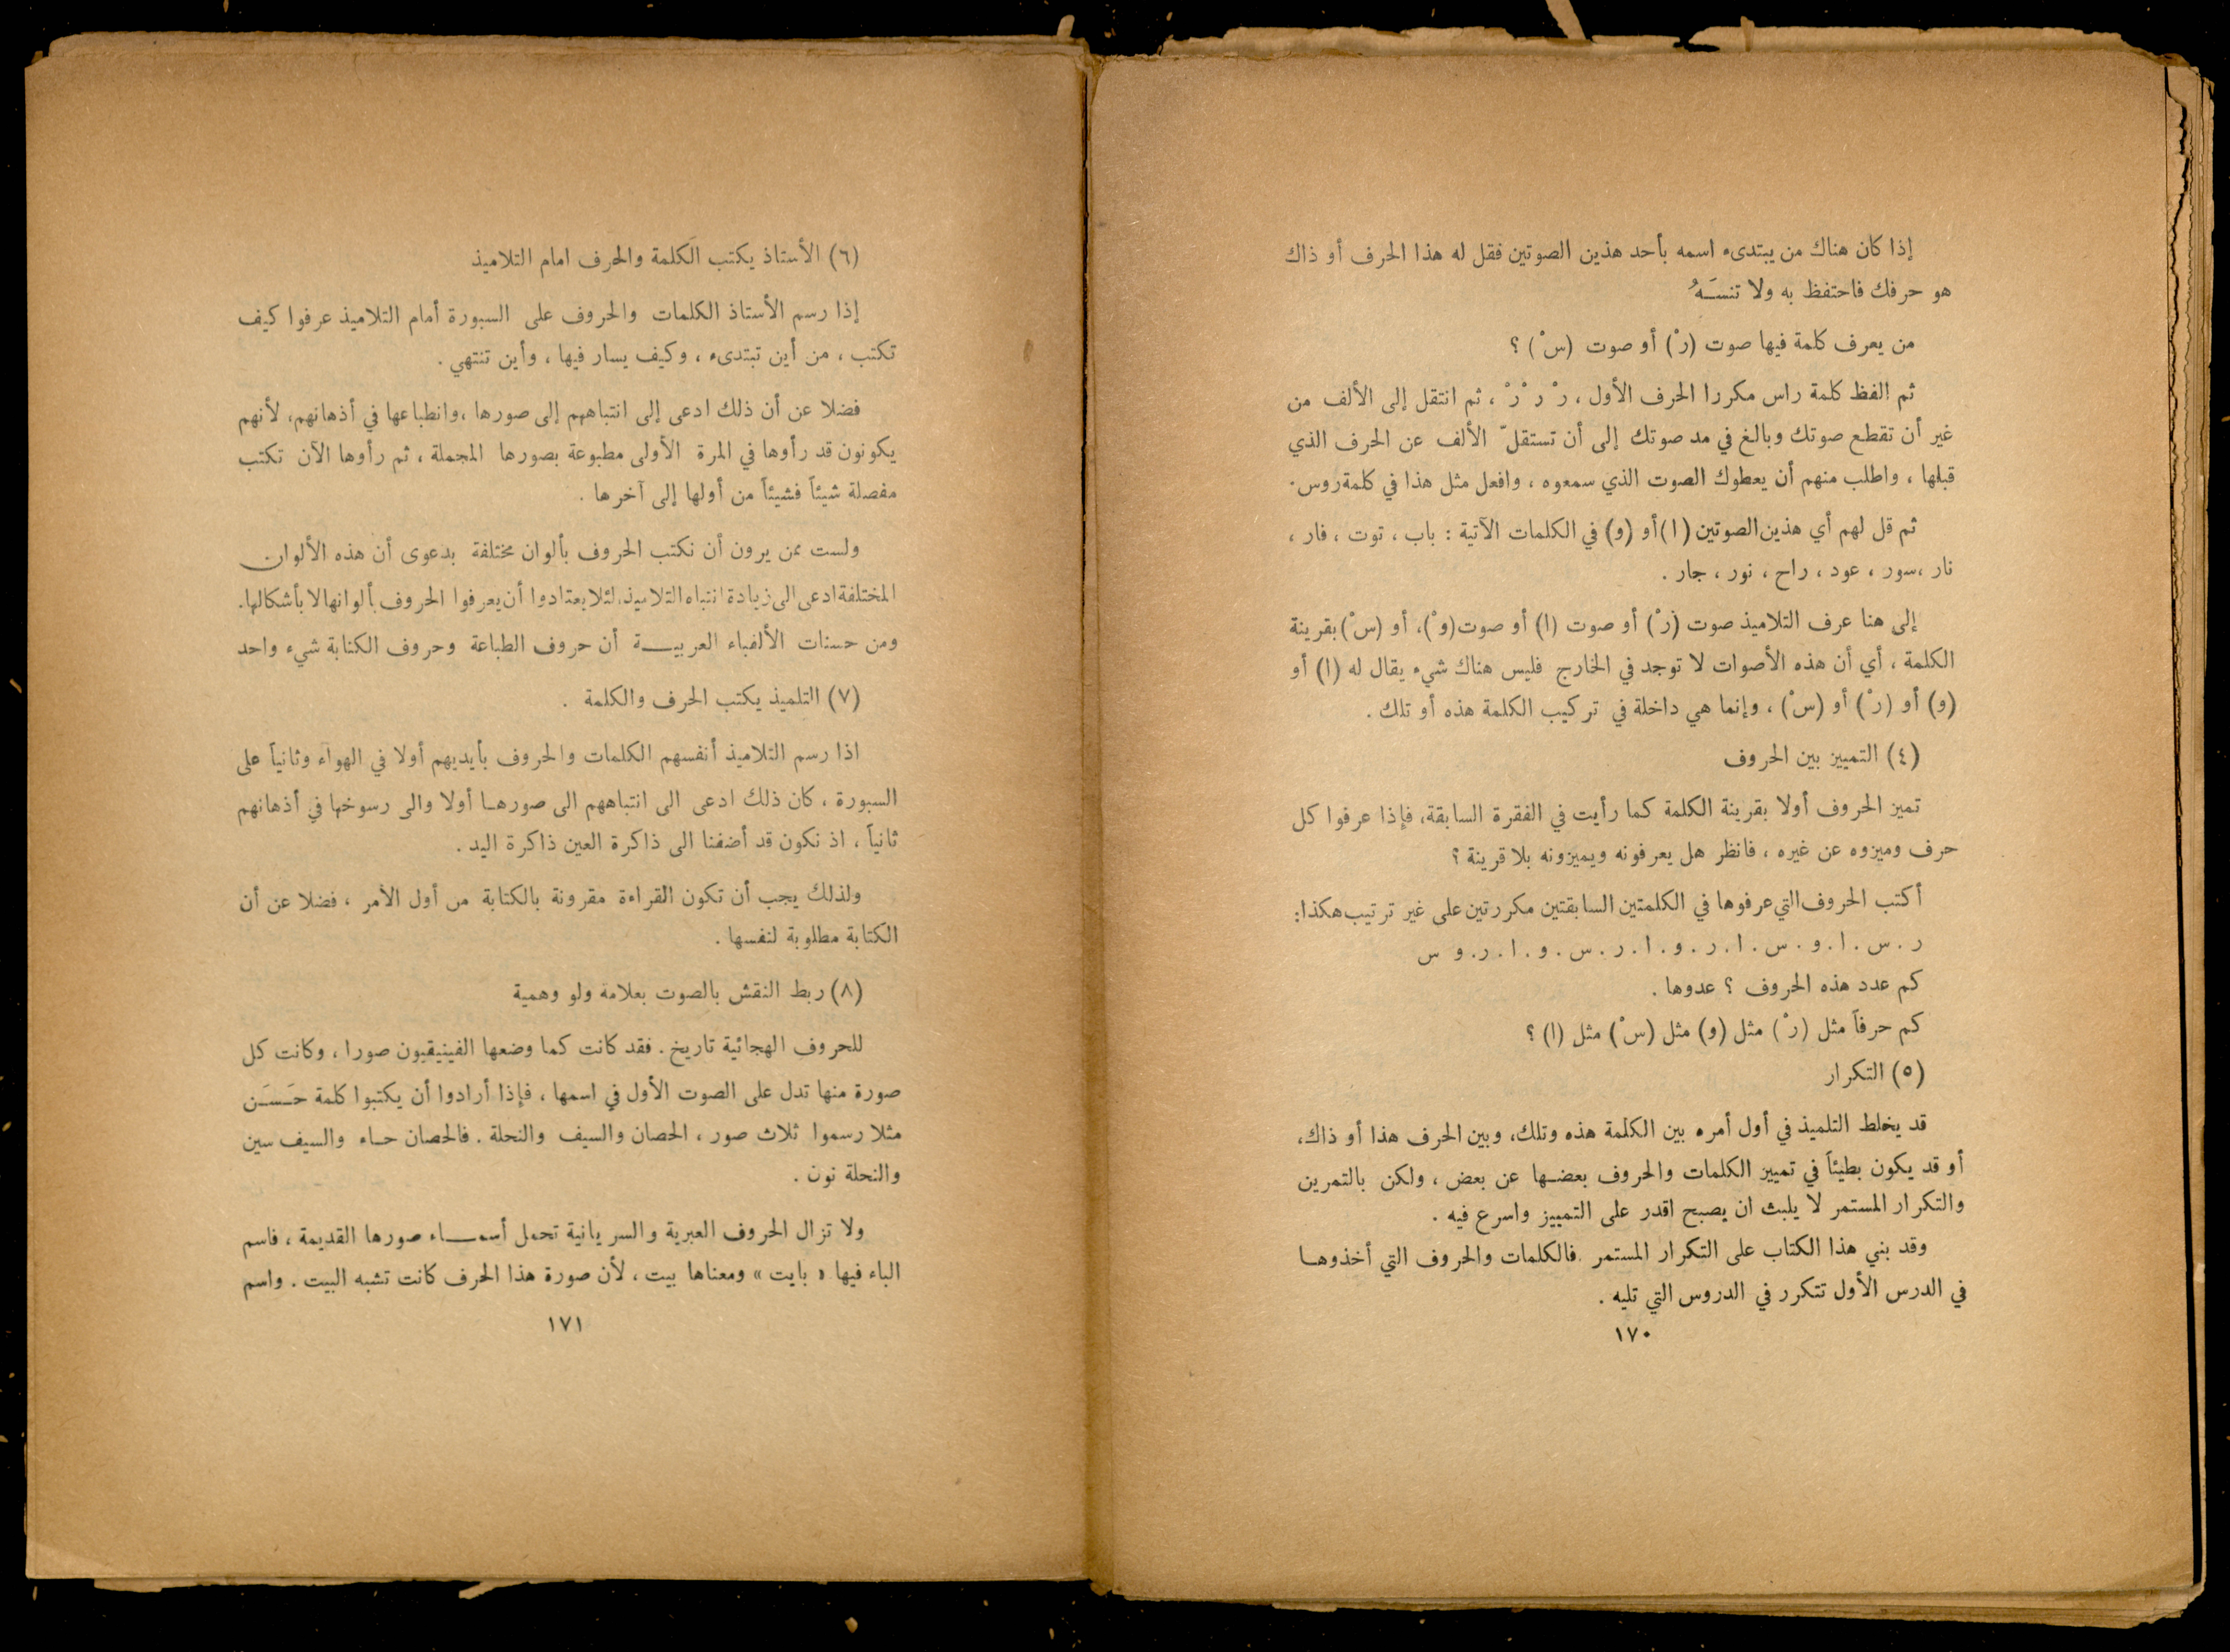 إذا كان هناك من يبتدىء اسمه بأحد هذين الصوتين فقل له هذا الحرف أو ذاك
هو حرفك فاحتفظ به ولا تنسَـهُ
من يعرف كلمة فيها صوت (رْ) أو صوت (سْ) ؟
ثم الفظ كلمة راس مكررا الحرف الأول ، رْ رْ رْ ، ثم انتقل إلى الألف من
غير أن تقطع صوتك وبالغ في مد صوتك إلى أن تستقلّ الألف عن الحرف الذي
قبلها ، واطلب منهم أن يعطوك الصوت الذي سمعوه ، وافعل مثل هذا في كلمة روس .
ثم قل لهم أي هذين الصوتين (ا) أو (و) في الكلمات الآتية : باب ، توت ، فار ،
نار ، سور ، عود ، راح ، نور ، جار .
إلى هنا عرف التلاميذ صوت (رْ) أو صوت (ا) أو صوت (وْ)، أو (سْ) بقرينة
الكلمة ، أي أن هذه الأصوات لا توجد في الخارج فليس هناك شيء يقال له (ا) أو
(و) أو (رْ) أو (سْ) ، وإنما هي داخلة في تركيب الكلمة هذه أو تلك .
(٤) التمييز بين الحروف
تميز الحروف أولا بقرينة الكلمة كما رأيت في الفقرة السابقة، فإذا عرفوا كل
حرف وميزوه عن غيره ، فانظر هل يعرفونه ويميزونه بلا قرينة ؟
أكتب الحروف التي عرفوها في الكلمتين السابقتين مكررتين على غير ترتيب هكذا:
ر . س . ا . و . س . ا . ر . و . ا . ر . س . و . ا . ر . و س
كم عدد هذه الحروف ؟ عدوها .
كم حرفاً مثل (رْ) مثل (و) مثل (سْ) مثل (ا) ؟
(٥) التكرار
قد يخلط التلميذ في أول أمره بين الكلمة هذه وتلك، وبين الحرف هذا أو ذاك،
أو قد يكون بطيئاً في تمييز الكلمات والحروف بعضـها عن بعض ، ولكن بالتمرين
والتكرار المستمر لا يلبث ان يصبح اقدر على التمييز واسرع فيه .
وقد بني هذا الكتاب على التكرار المستمر . فالكلمات والحروف التي أخذوهـا
في الدرس الأول تتكرر في الدروس التي تليه .
١٧٠
(٦) الأستاذ يكتب الكلمة والحرف امام التلاميذ
إذا رسم الأستاذ الكلمات والحروف على السبورة أمام التلاميذ عرفوا كيف
تكتب ، من أين تبتدىء ، وكيف يسار فيها ، وأين تنتهي .
فضلا عن أن ذلك ادعى إلى انتباههم إلى صورها ، وانطباعها في أذهانهم، لأنهم
يكونون قد رأوها في المرة الأولى مطبوعة بصورها المجملة ، ثم رأوها الآن تكتب
مفصلة شيئاً فشيئاً من أولها إلى آخرها .
ولست ممن يرون أن نكتب الحروف بألوان مختلفة بدعوى أن هذه الألوان
المختلفة ادعى الى زيادة انتباه التلاميذ، لئلا يعتادوا أن يعرفوا الحروف بألوانها لا بأشكالها.
ومن حسنات الألفباء العربيـــة أن حروف الطباعة وحروف الكتابة شيء واحد
(٧) التلميذ يكتب الحرف والكلمة .
اذا رسم التلاميذ أنفسهم الكلمات والحروف بأيديهم أولا في الهواء وثانياً على
السبورة ، كان ذلك ادعى الى انتباههم الى صورهـا أولا والى رسوخها في أذهانهم
ثانياً ، اذ نكون قد أضفنا الى ذاكرة العين ذاكرة اليد .
ولذلك يجب أن تكون القراءة مقرونة بالكتابة من أول الأمر ، فضلا عن أن
الكتابة مطلوبة لنفسها .
(٨) ربط النقش بالصوت بعلامة ولو وهمية
للحروف الهجائية تاريخ . فقد كانت كما وضعها الفينيقيون صورا ، وكانت كل
صورة منها تدل على الصوت الأول في اسمها ، فإذا أرادوا أن يكتبوا كلمة حَـسَـن
مثلا رسموا ثلاث صور ، الحصان والسيف والنحلة . فالحصان حـاء والسيف سين
والنحلة نون .
ولا تزال الحروف العبرية والسريانية تحمل أسمـــاء صورها القديمة ، فاسم
الباء فيها « بايت » ومعناها بيت ، لأن صورة هذا الحرف كانت تشبه البيت . واسم
١٧١